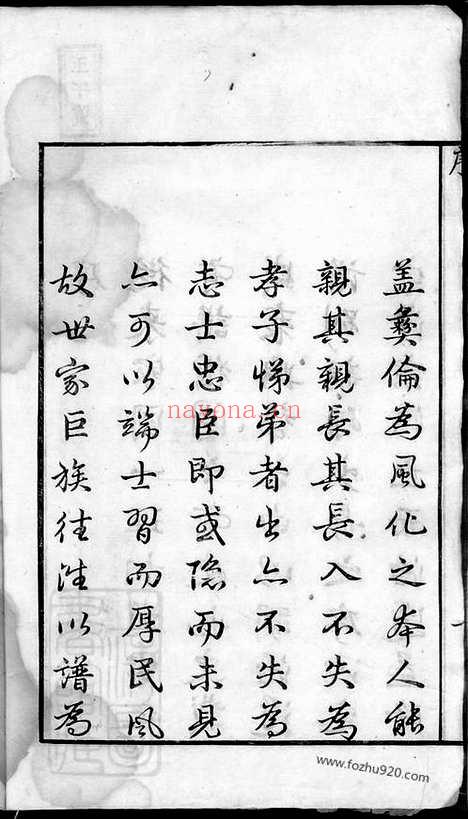 序
盖彝倫為風化之本人能
親其親長其長入不失為
孝子悌弟者出亦不失為
志士忠臣即或隐而未見
亦可以端士習而厚民風
故世家巨族往往以譜為
nayona.cn
www.fozhu920.com